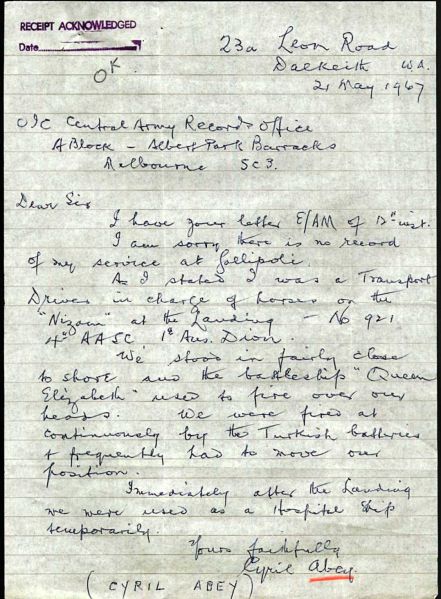 RECEIPT ACKNOWLEDGED
Date
OK.
23a Leon Road
Dalkeith W.A.
21 May 1967
OIC Central Army Records Office
A Block – Albert Park Barracks
Melbourne SC3.
Dear Sir
I have your letter E/AM of 12th inst.
I am sorry there is no record
of my service at Gallipoli.
As I stated I was a Transport
Driver in charge of horses on the
"Nizam" at the Landing – No 921
4th AASC 1st Aus. Divn.
We stood in fairly close
to shore and the battleship "Queen
Elizabeth" used to fire over our
heads. We were fired at
continuously by the Turkish batteries
+ frequently had to move our
position.
Immediately after the Landing
we were used as a Hospital Ship
temporarily.
Yours faithfully
Cyril Abey.
(CYRIL ABEY)